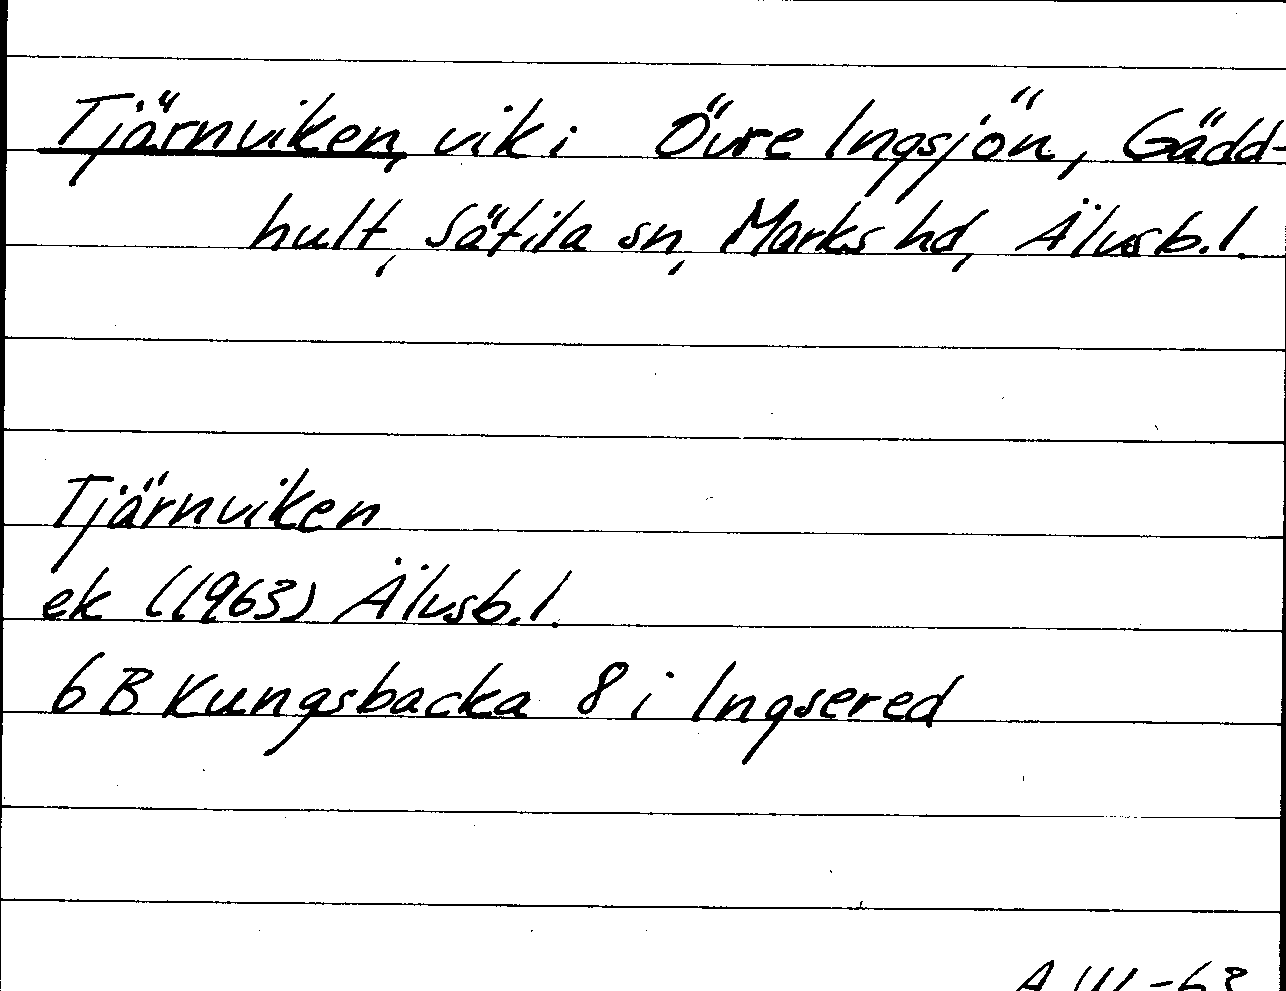 Tjärnviken, vik i Övre Ingsjön, Gädd-
hult, Sätila sn, Marks hd, Älvsb.l.
Tjärnviken
ek (1963) Älvsb.l.
6B Kungsbacka 8i Ingsered